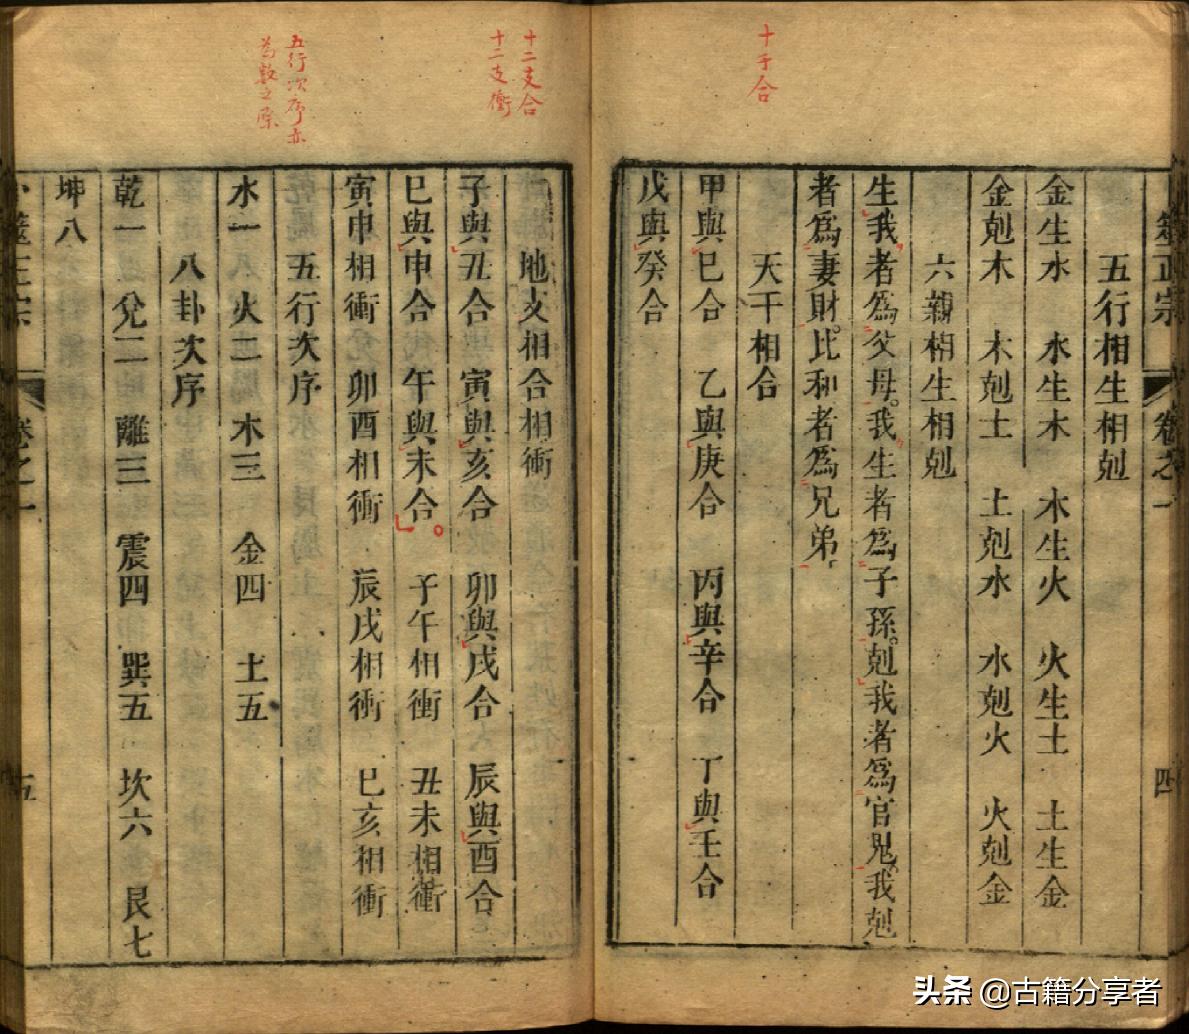 十干合
卜筮正宗 卷之一 四
五行相生相剋
金生水 水生木 木生火 火生土 土生金
金剋木 木剋土 土剋水 水剋火 火剋金
六親相生相剋
生我者爲父母。我生者爲子孫。剋我者爲官鬼。我剋
者爲妻財。比和者爲兄弟。
天干相合
甲與己合 乙與庚合 丙與辛合 丁與壬合
戊與癸合
十二支合
十二支衝
五行次序亦
為數之原
地支相合相衝
子與丑合 寅與亥合 卯與戌合 辰與酉合
巳與申合 午與未合。 子午相衝 丑未相衝
寅申相衝 卯酉相衝 辰戌相衝 巳亥相衝
五行次序
水一 火二 木三 金四 土五
八卦次序
乾一 兌二 離三 震四 巽五 坎六 艮七
坤八
卜筮正宗 卷之一 五
头条 @古籍分享者